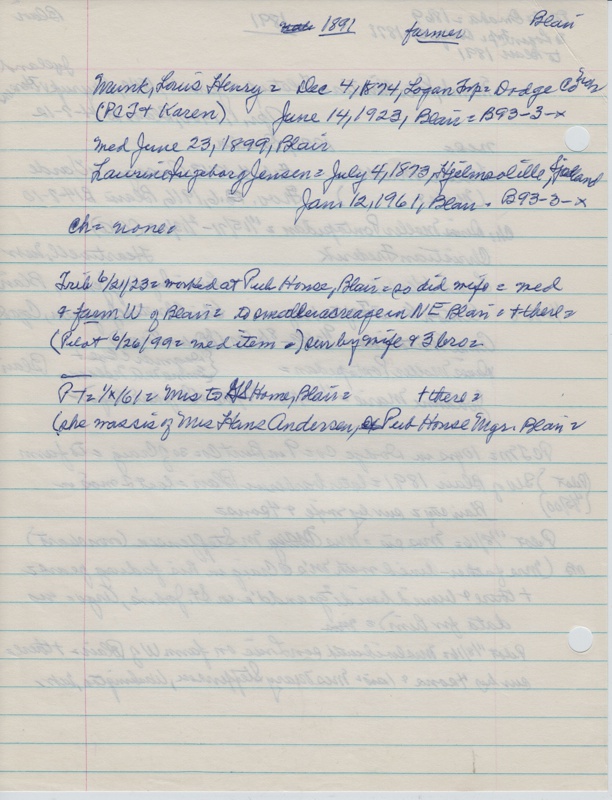 1891 farmer Blair
Munk, Louis Henry = Dec 4, 1874, Logan Twp = Dodge Co
(PCJ + Karen) June 14, 1923, Blair = B93-3-x
med June 23, 1899, Blair
Laurine Ingeborg Jensen = July 4, 1873, Hjelmsolille, Sjelland
Jan 12, 1961, Blair = B93-3-x
ch = none =
Trib 6/21/23 = worked at Pub House, Blair = so did wife = med
& farm W of Blair = to smaller acreage in NE Blair = + there =
(Pilot 6/26/99 = med item =) sur by wife & 3 bros =
P-T = 1/x/61 = Mrs to GS Home, Blair = + there =
(she was sis of Mrs Hans Andersen, Pub House Mgr. Blair =